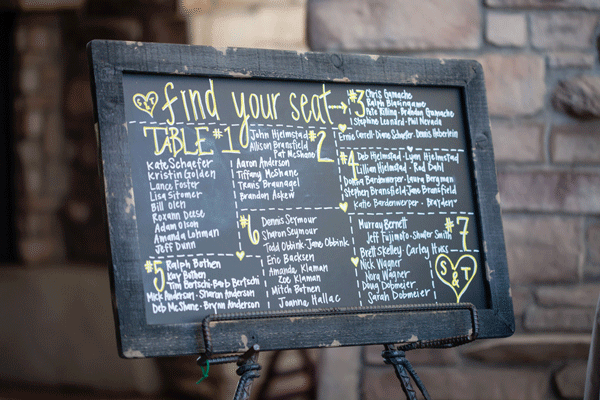 find your seat →
TABLE #1
Kate Schaefer
Kristin Golden
Lance Foster
Lisa Stomer
Bill Oleh
Roxann Deese
Adam Olson
Amanda Lohman
Jeff Dunn
#2
John Hjelmstad
Allison Bransfield
Pat McShane
Aaron Anderson
Tiffany McShane
Travis Brannagel
Brandon Askew
#3
Chris Gamache
Ralph Blasingame
Pike Killing - Brandon Gamache
Stephne Leonard - Phil Nevada
Ernie Carroll - Diane Schaefer - Dennis Haberlein
#4
Deb Hjelmstad - Lynn Hjelmstad
Lillian Hjelmstad - Rod Dahl
Donna Bardenwerper - Laura Bergman
Stephen Bransfield - Jane Bransfield
Katie Bardenwerper - Brayden
#5
Ralph Bathen
Kay Bathen
Tim Bertschi - Barb Bertschi
Mick Anderson - Sharon Anderson
Deb McShane - Brynn Anderson
#6
Dennis Seymour
Sharon Seymour
Todd Obbink - Jane Obbink
Eric Backsen
Amanda Klaman
Zoe Klaman
Mitch Botnen
Joanna Hallac
#7
Murray Bernett
Jeff Fujimoto - Shuler Smith
Brett Skelley - Carley Hruss
Nick Wagner
Nora Wagner
Doug Dobmeier
Sarah Dobmeier
S & T